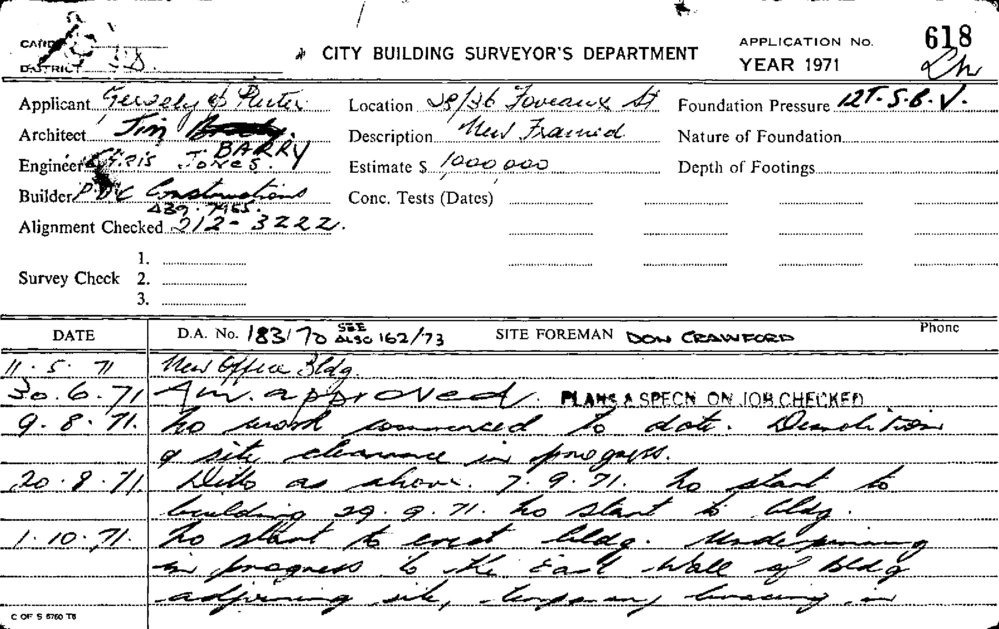 CITY BUILDING SURVEYOR'S DEPARTMENT
APPLICATION No. 618
YEAR 1971
DISTRICT
Applicant Gergely &
Location 28/36 Foveaux St
Foundation Pressure 12T.S.B.V.
Architect Jim BARRY
Description New Framed
Nature of Foundation
Engineer Chris Jones.
Estimate $ 1000,000
Depth of Footings
Builder P.D.C Constructions
Conc. Tests (Dates)
Alignment Checked 212-3222.
Survey Check
1.
2.
3.
DATE
D.A. No. 183/70 SEE ALSO 162/73
SITE FOREMAN DON CRAWFORD
Phone
11. 5. 71 New Office Bldg.
30. 6. 71 Am. approved. PLANS & SPECN ON JOB CHECKED
9. 8. 71. No work commenced to date. Demolition
& site clearance in progress.
20. 8. 71. Ditto as above. 7. 9. 71. No start to
building 29. 9. 71. No start to bldg.
1. 10. 71. No start to erect bldg. Underpinning
in progress to the East Wall of Bldg
adjoining site, temporary bracing in
C OF S 5760 T8